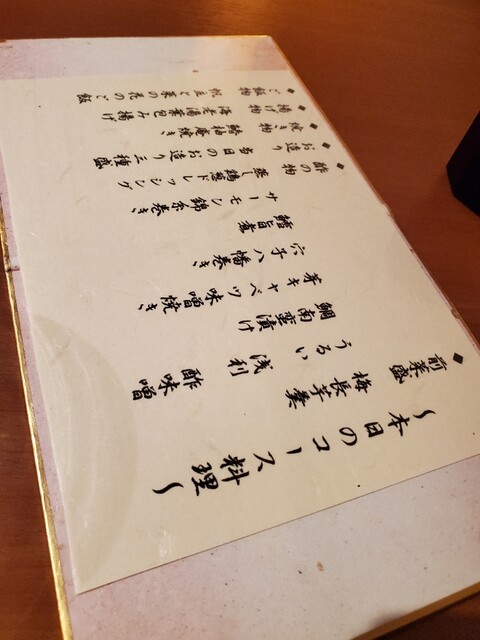 〜本日のコース料理〜
◆前菜盛
梅長芋羹
うるい 浅利 酢味噌
鯛南蛮漬け
芽キャベツ味噌焼き
穴子八幡巻き
鱈旨煮
サーモン錦糸巻き
◆酢の物 蒸し鶏葱ドレッシング
◆お造り 当日のお造り三種盛
◆焼き物 柚庵焼き
◆揚げ物 海老湯葉包み揚げ
◆ご飯物 帆立と菜の花のご飯